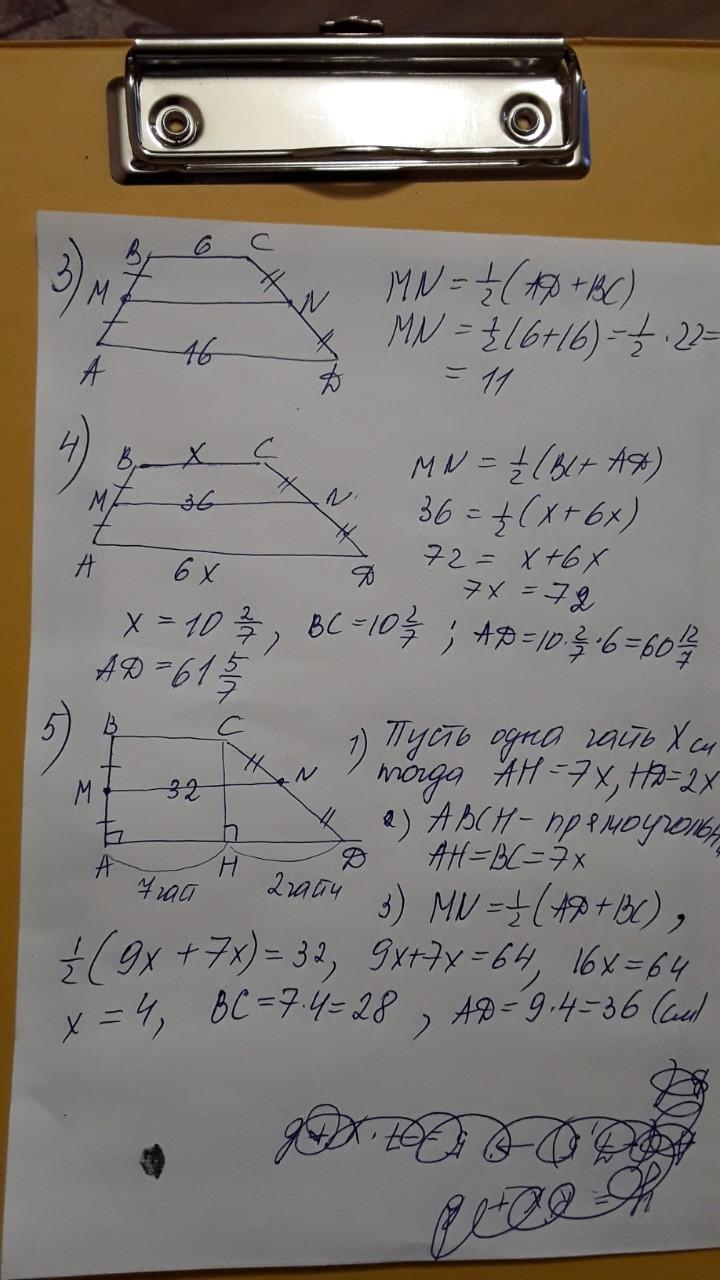 3)
B 6 C
M N
A 16 D
MN = 1/2 (AD + BC)
MN = 1/2 (6+16) = 1/2 · 22 =
= 11
4)
B x C
M 36 N
A 6x D
MN = 1/2 (BC + AD)
36 = 1/2 (x + 6x)
72 = x + 6x
7x = 72
x = 10 2/7, BC = 10 2/7 ; AD = 10 · 2/7 · 6 = 60 12/7
AD = 61 5/7
5)
B C
M 32 N
A H D
7 2
1) Пусть одна часть x см
тогда AH = 7x, HD = 2x
2) ABCH -
AH = BC = 7x
3) MN = 1/2 (AD + BC),
1/2 (9x + 7x) = 32, 9x + 7x = 64, 16x = 64
x = 4, BC = 7 · 4 = 28, AD = 9 · 4 = 36 (см)